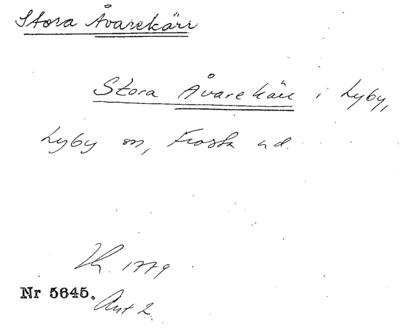 Stora Åvarekärr
Stora Åvarekärr i Lyby,
Lyby sn, Frosta hd.
1779
Nr 5645.
Akt 2.